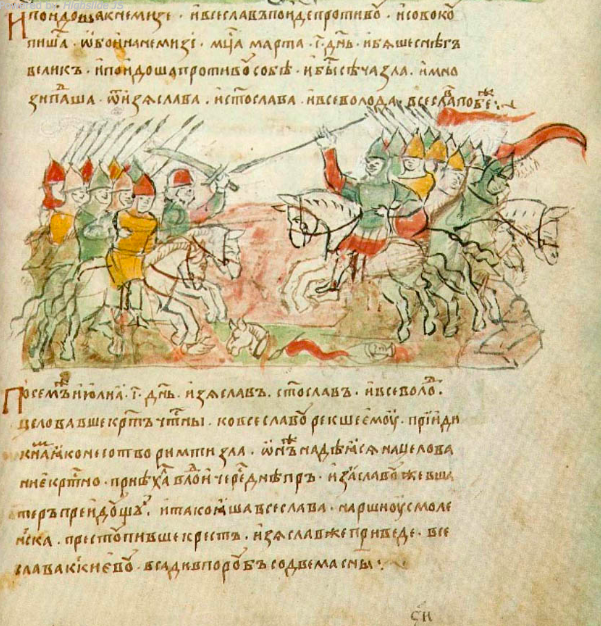 Highslide JS
И поидоша к немизе · и всеславъ поиде противꙋ · и совокꙋ
пиша ѿбои на немизе · мца марта · г҃ · дн҃ь · и бѧше снѣгъ
великъ · и поидоша противꙋ собѣ · и бы сѣча зла · и мно
зи паша · ѿ изѧслава · и стослава · и всеволода · всеславъ побѣже
июлиа · г҃ · дн҃ь · изѧславъ · стославъ · и всеволоⷣ ·
целовавше крⷭтъ чтⷭны · ко всеславꙋ рекше емоу · прииди
ѧко не сотворим ти зла · надѣѧсѧ на целова
ние крⷭтно · приѣха в лоⷣи череⷥ днепръ · изѧславꙋ же в ша
теръ · и тако ѧша всеслава · на рши оу смоле
нска · престꙋпивше крестъ · изѧслав же приведе · все
слава к киевꙋ · всади в порꙋбъ со двема сн҃ы